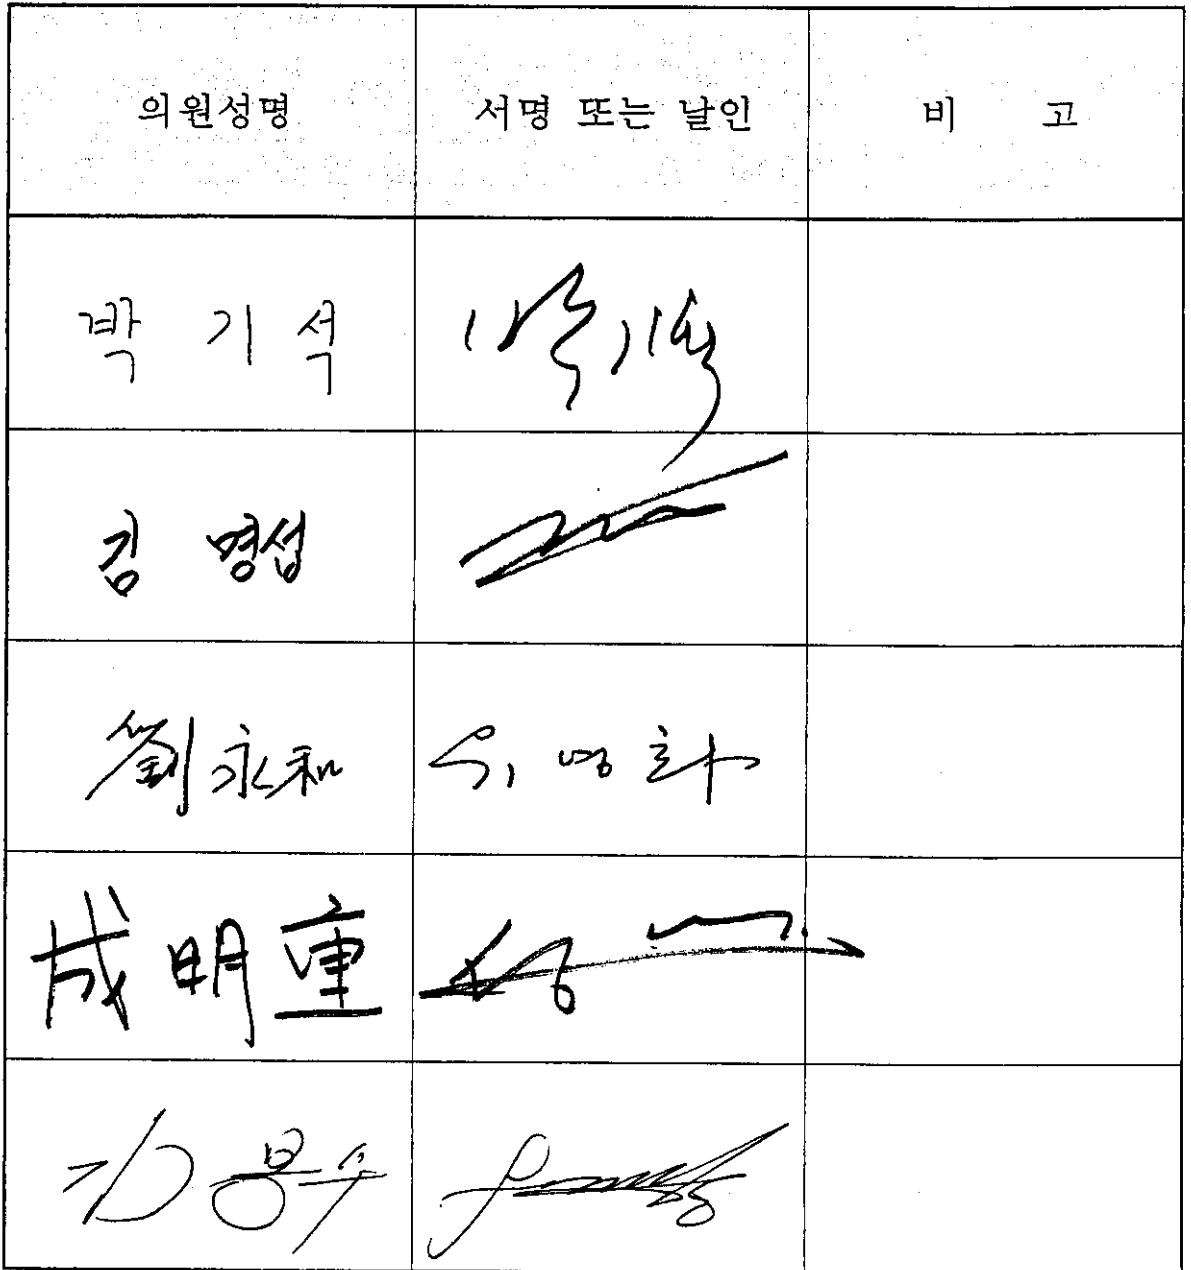 의원성명 서명 또는 날인 비 고
박 기 석 박기석
김 명섭
劉永和 유영화
成明重
김봉수